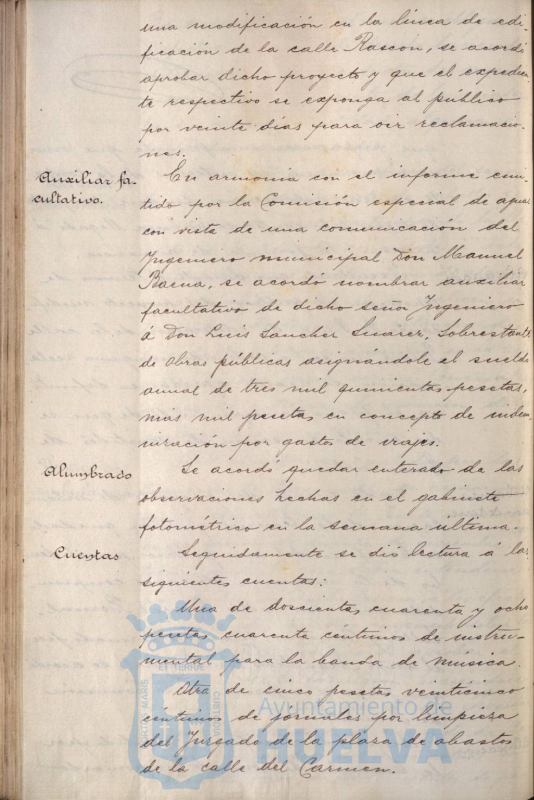 una modificación en la línea de edi-
ficación de la calle Rascón, se acordó
aprobar dicho proyecto y que el expedien-
te respectivo se exponga al público
por veinte días para oir reclamacio-
nes.
Auxiliar fa-
cultativo.
En armonía con el informe emi-
tido por la Comisión especial de aguas
con vista de una comunicación del
Ingeniero municipal Don Manuel
Baena, se acordó nombrar auxiliar
facultativo de dicho señor Ingeniero
á Don Luis Sanchez Suarez, Sobrestante
de obras públicas asignándole el sueldo
anual de tres mil quinientas pesetas,
más mil pesetas en concepto de indem-
nización por gastos de viajes.
Alumbrado
Se acordó quedar enterado de las
observaciones hechas en el gabinete
fotométrico en la semana última.
Cuentas
Seguidamente se dió lectura á las
siguientes cuentas:
Una de doscientas cuarenta y ocho
pesetas cuarenta céntimos de instru-
mental para la banda de música.
Otra de cinco pesetas veinticinco
céntimos de jornales por limpieza
del Juzgado de la plaza de abastos
de la calle del Carmen.
Ayuntamiento de
HUELVA